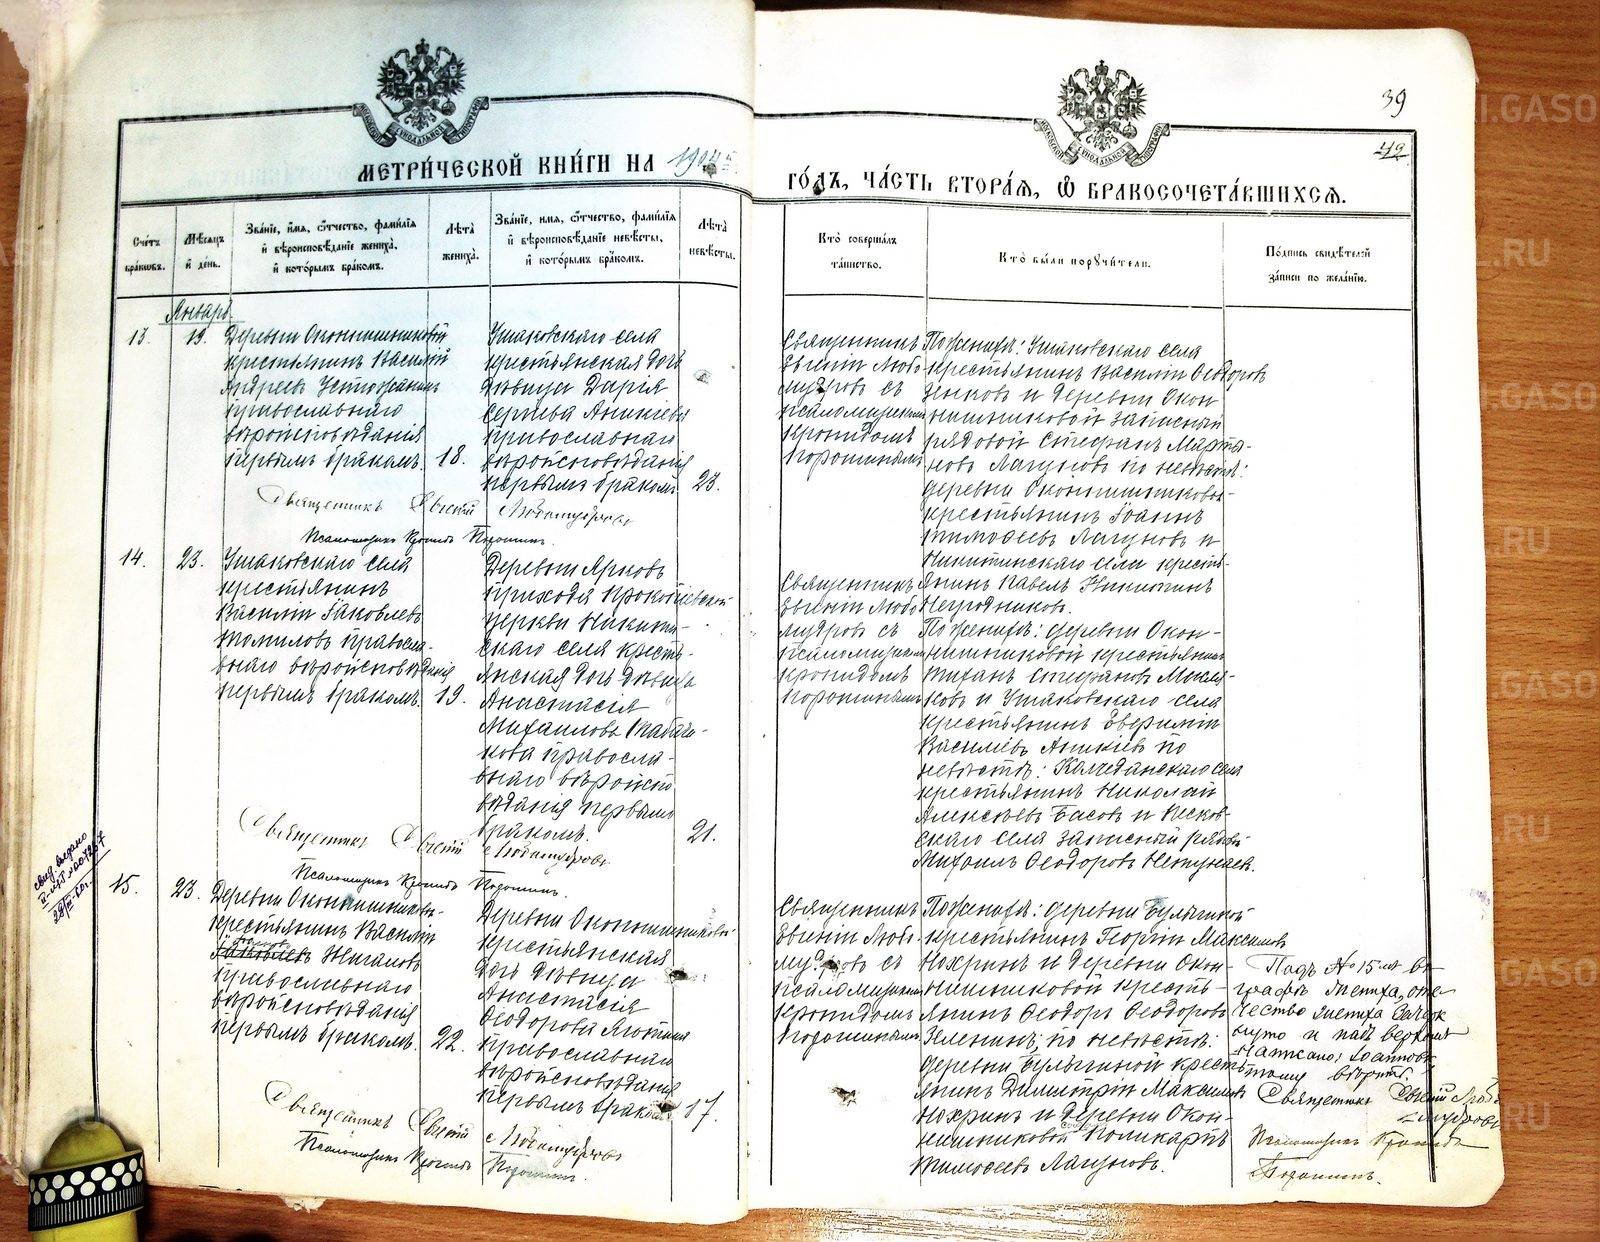 39
49
МЕТРИЧЕСКОЙ КНИГИ НА 1904
ГОДЪ, ЧАСТЬ ВТОРАЯ, Ѽ БРАКОСОЧЕТАВШИХСЯ.
Счетъ браковъ.
Мѣсяцъ и день.
Званіе, имя, ѿчество, фамилія
и вѣроисповѣданіе жениха,
и которымъ бракомъ.
Лѣта жениха.
Званіе, имя, ѿчество, фамилія
и вѣроисповѣданіе невѣсты,
и которымъ бракомъ.
Лѣта невѣсты.
Кто совершалъ
таинство.
Кто были поручители.
Подпись свидѣтелей
записи по желанію.
Январь
13. 19.
крестьянинъ Василій
Андреевъ
православнаго
вѣроисповѣданія
первымъ бракомъ. 18.
Ушаковскаго села
крестьянская дочь
дѣвица Дарія
Сергіева Аникіева
православнаго
вѣроисповѣданія
первымъ бракомъ 23.
Священникъ
Евгеній Любо-
мудровъ съ
псаломщикомъ
Кронидомъ
Порошинымъ
По женихѣ: Ушаковскаго села
крестьянинъ Василій Ѳеодоровъ
и деревни Окон-
нишниковой запасный
рядовой Стефанъ Марты-
новъ Лагуновъ по невѣстѣ:
деревни Оконнишниковой
крестьянинъ Іоаннъ
Тимоѳеевъ Лагуновъ и
Никитинскаго села кресть-
янинъ Павелъ Никитинъ
Негродниковъ.
Священникъ Евгеній Любомудровъ
Псаломщикъ Кронидъ Порошинъ.
14. 23.
Ушаковскаго села
крестьянинъ
Василій Іаковлевъ
Томиловъ правосла-
внаго вѣроисповѣданія
первымъ бракомъ. 19.
Деревни
прихода Прокопіевской
церкви Никитин-
скаго села кресть-
янская дочь дѣвица
Анастасія
Михаилова
православ-
наго вѣроиспо-
вѣданія первымъ
бракомъ. 21.
Священникъ
Евгеній Любо-
мудровъ съ
псаломщикомъ
Кронидомъ
Порошинымъ
По женихѣ: деревни Окон-
нишниковой крестьянинъ
Стефановъ
и Ушаковскаго села
крестьянинъ Евѳимій
Василіевъ Аникіевъ по
невѣстѣ: Колчеданскаго села
крестьянинъ Николай
Алексѣевъ Басовъ и
села запасный рядовой
Михаилъ Ѳеодоровъ
Священникъ Евгеній Любомудровъ
Псаломщикъ Кронидъ Порошинъ.
15. 23.
Деревни Оконнишниковой
крестьянинъ Василій
Іаковлевъ Жигаловъ
православнаго
вѣроисповѣданія
первымъ бракомъ. 22.
Деревни Оконнишниковой
крестьянская
дочь дѣвица
Анастасія
Ѳеодорова
православнаго
вѣроисповѣданія
первымъ бракомъ 17.
Священникъ
Евгеній Любо-
мудровъ съ
псаломщикомъ
Кронидомъ
Порошинымъ
По женихѣ: деревни Булыгиной
крестьянинъ Георгій Максимовъ
Нохринъ и деревни Окон-
нишниковой кресть-
янинъ Ѳеодоръ Ѳеодоровъ
Зеленинъ; по невѣстѣ:
деревни Булыгиной кресть-
янинъ Димитрій Максимовъ
Нохринъ и деревни Окон-
нишниковой Поликарпъ
Тимоѳеевъ Лагуновъ.
Подъ № 15 въ
графѣ жениха, оте-
чество жениха зачерк-
нуто и надъ верхомъ
написано: Іоанновъ
тому вѣрить.
Священникъ Евгеній Любо-
мудровъ
Псаломщикъ Кронидъ
Порошинъ.
Священникъ Евгеній Любомудровъ
Псаломщикъ Кронидъ Порошинъ.